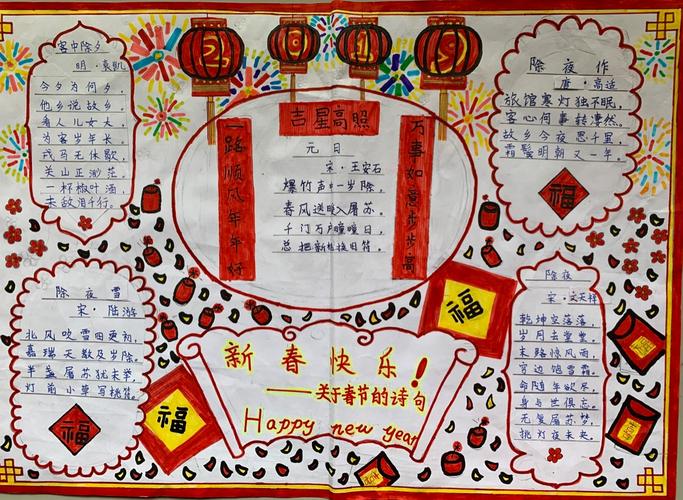 2 0 1 9
客中除夕
明·袁凯
今夕为何夕,
他乡说故乡。
看人儿女大,
为客岁年长。
戎马无休歇,
关山正渺茫。
一杯椒叶酒,
未敌泪千行。
吉星高照
一路顺风年年好
万事如意步步高
元日
宋·王安石
爆竹声中一岁除,
春风送暖入屠苏。
千门万户曈曈日,
总把新桃换旧符。
除夜作
唐·高适
旅馆寒灯独不眠,
客心何事转凄然。
故乡今夜思千里,
霜鬓明朝又一年。
福
除夜雪
宋·陆游
北风吹雪四更初,
嘉瑞天教及岁除。
半盏屠苏犹未举,
灯前小草写桃符。
福
福
福
新春快乐!
——关于春节的诗句
Happy new year
除夜
宋·文天祥
乾坤空落落,
岁月去堂堂。
末路惊风雨,
穷边饱雪霜。
命随年欲尽,
身与世俱忘。
无复屠苏梦,
挑灯夜未央。